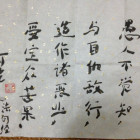 愚人不觉知
与自仇敌行
造作诸恶业
受定众苦果
法句经